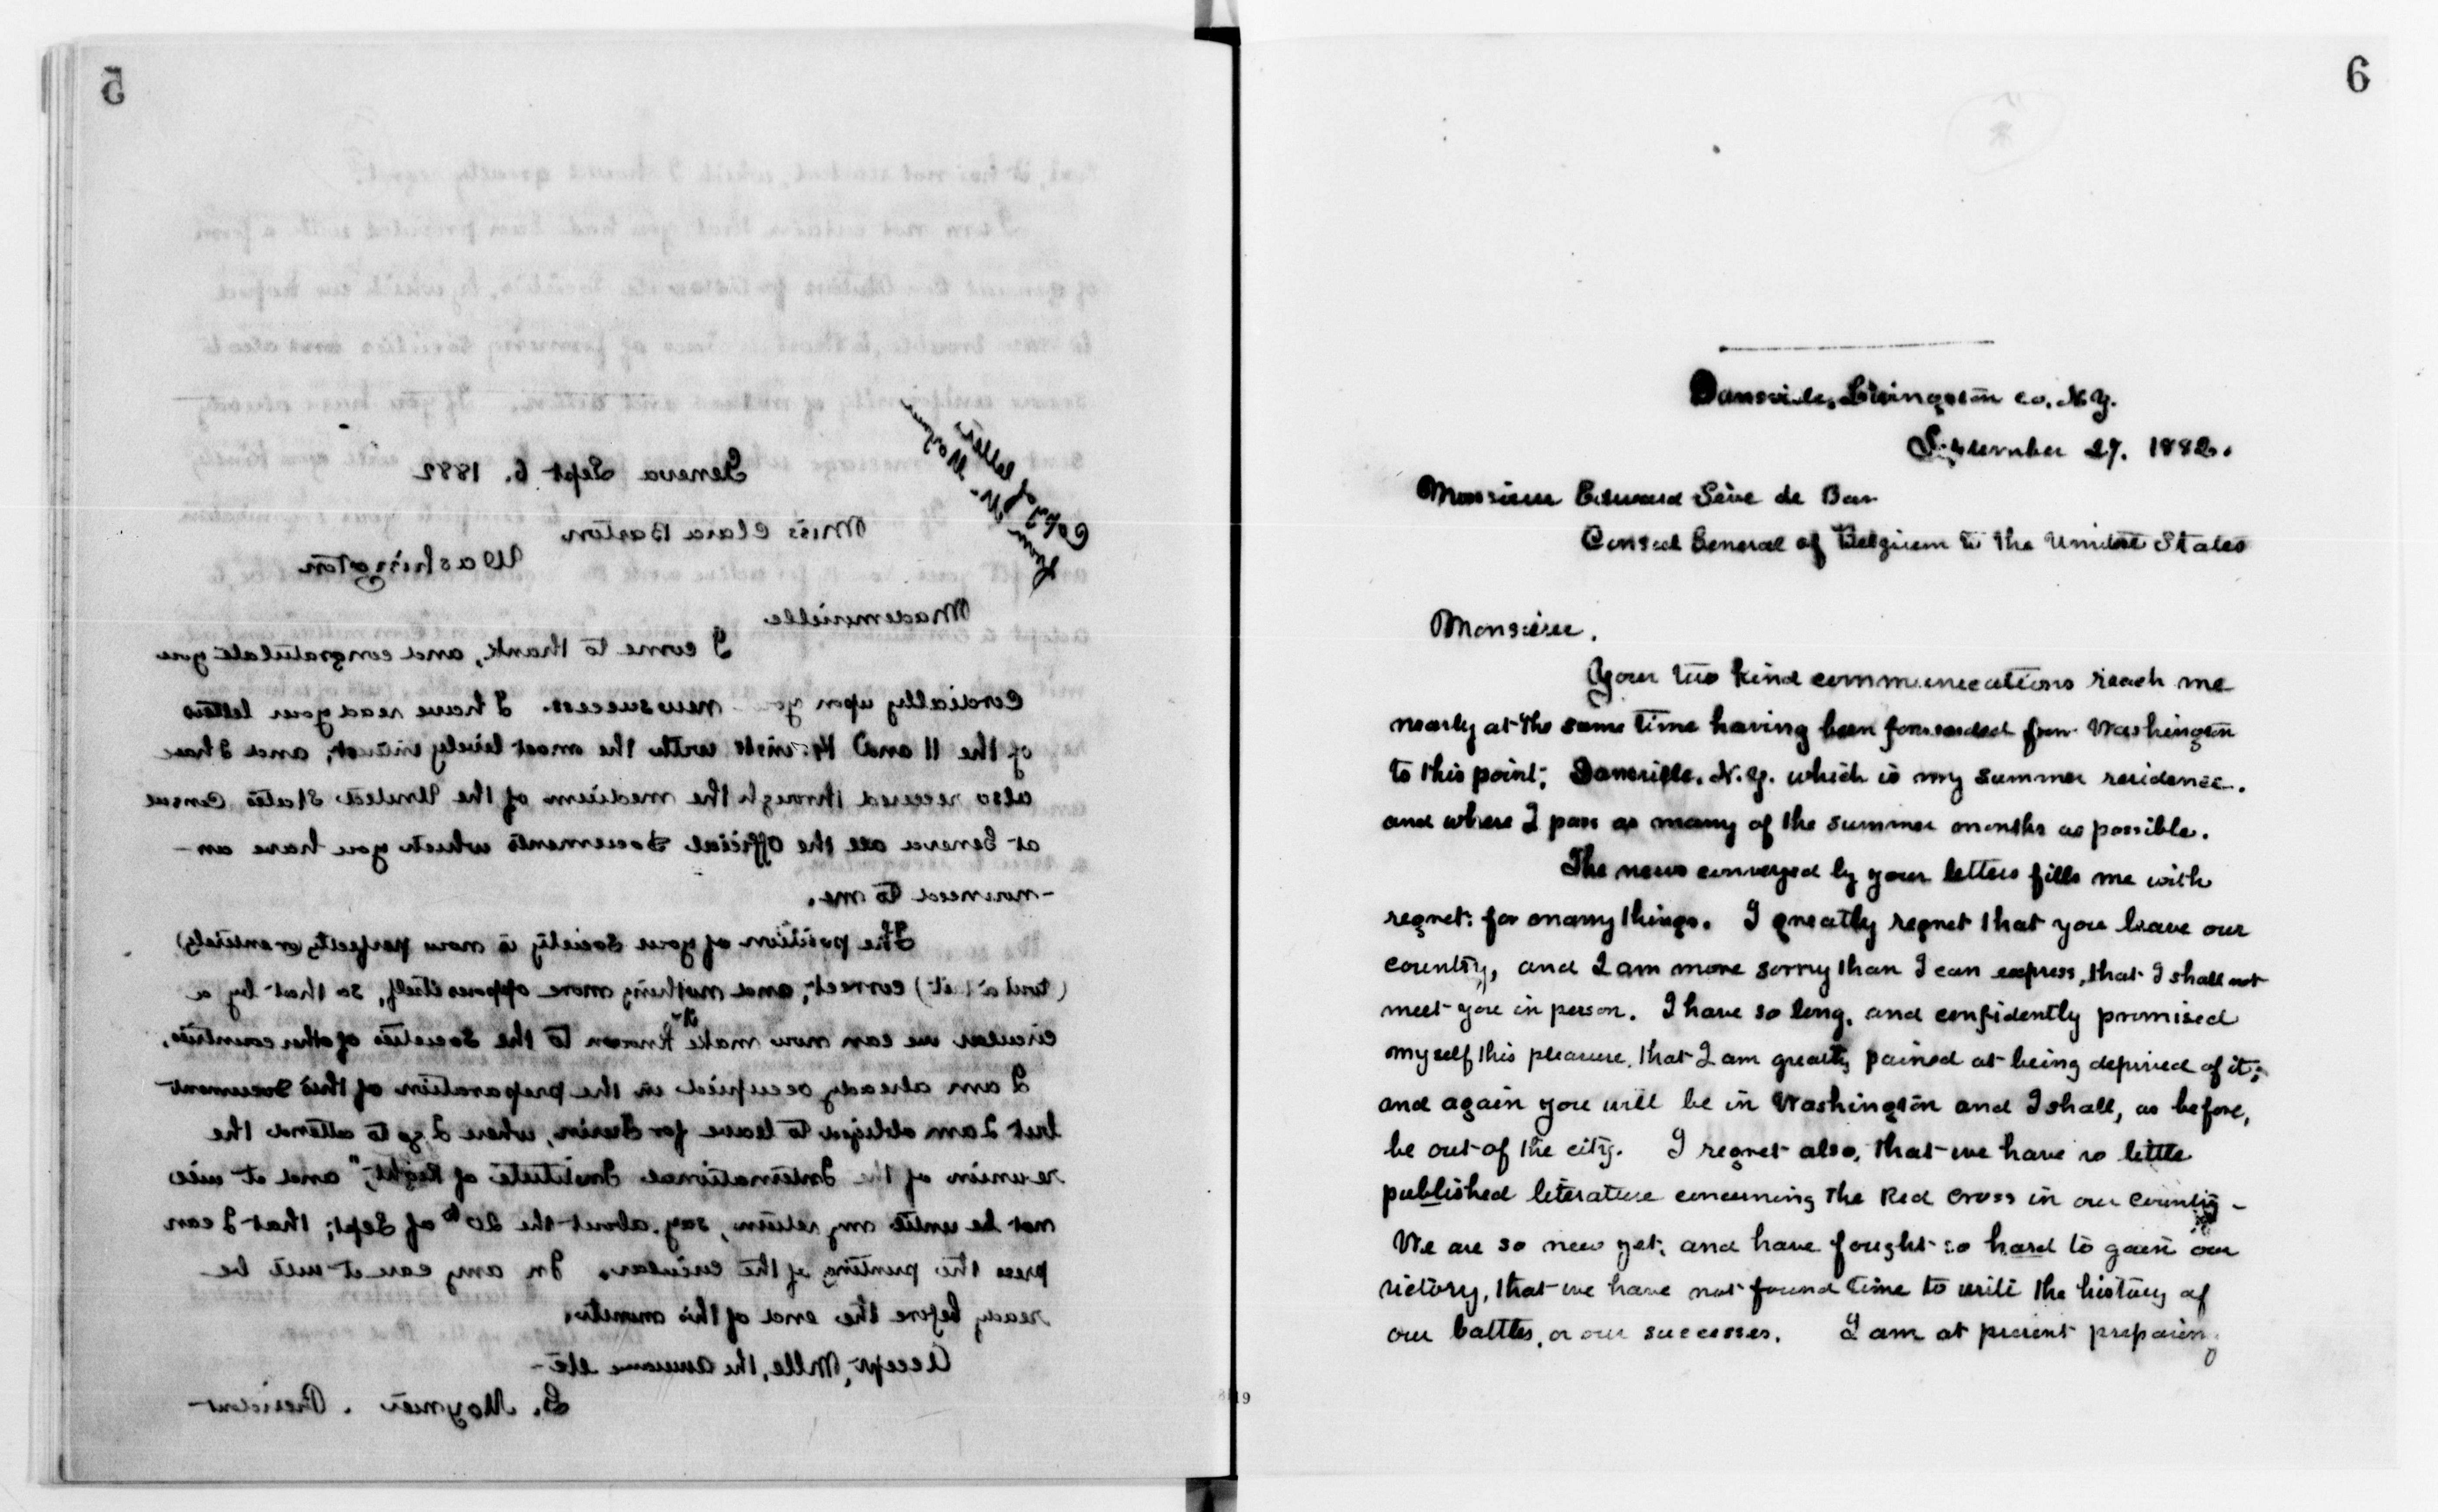 5
Geneva Sept 6. 1882
Miss Clara Barton
Washington
Mademoiselle
I come to thank, and congratulate you
cordially upon your new success. I have read your letters
of the 11 and 14 inst with the most lively interest, and I have
also received through the medium of the United States Consul
at Geneva all the official Documents which you have an-
-nounced to me.
The position of your Society is now perfectly (or entirely)
correct, and nothing more opposes itself, so that by a
circular we can now make it known to the Societies of other countries.
I am already occupied in the preparation of this document
but I am obliged to leave for Turin, where I go to attend the
reunion of the International Institute of Right," and it will
not be until my return, say about the 20th of Sept; that I can
press the printing of the circular. In any case it will be
ready before the end of this month.
Accept, Mlle, the assurance etc-
G. Moynier. President
6
Dansville, Livingston co. N.Y.
September 27. 1882.
Monsieur Edward Séve de Bar
Consul General of Belgium to the United States
Monsieur.
Your two kind communications reach me
nearly at the same time having been forwarded from Washington
to this point; Dansville. N.Y. which is my summer residence.
and where I pass as many of the summer months as possible.
The news conveyed by your letters fills me with
regret: for many things. I greatly regret that you leave our
country, and I am more sorry than I can express, that I shall not
meet you in person. I have so long, and confidently promised
myself this pleasure, that I am greatly pained at being deprived of it;
and again you will be in Washington and I shall, as before,
be out of the city. I regret also, that we have so little
published literature concerning the Red Cross in our country -
We are so new yet, and have fought so hard to gain our
victory, that we have not found time to write the history of
our battles, or our successes. I am at present preparing